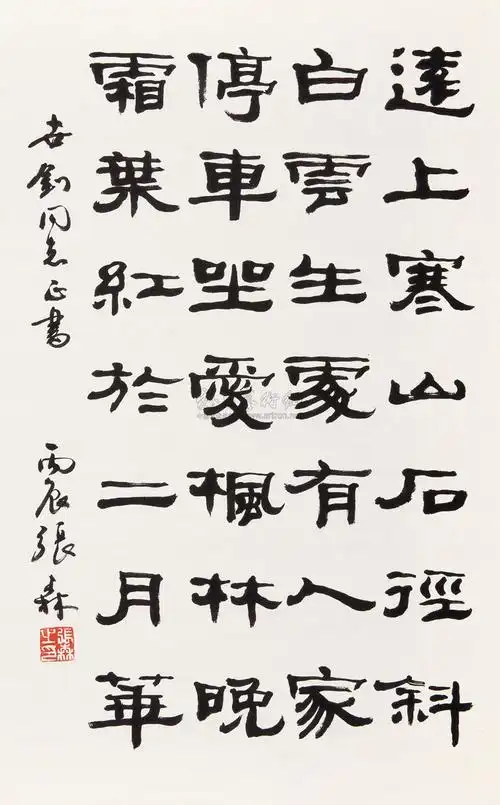 遠上寒山石徑斜
白雲生處有人家
停車坐愛楓林晚
霜葉紅於二月華
同志正書
丙辰張森
張森之印